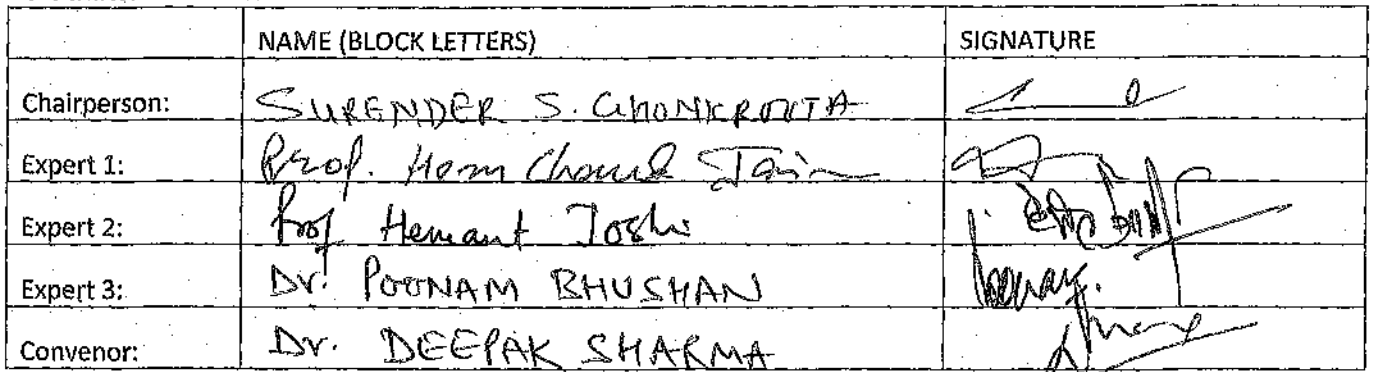 NAME (BLOCK LETTERS) SIGNATURE
Chairperson: SURENDER S. GHONKROKTA
Expert 1: Prof. Hem Chand Jain
Expert 2: Prof Hemant Joshi
Expert 3: Dr. POONAM BHUSHAN
Convenor: Dr. DEEPAK SHARMA